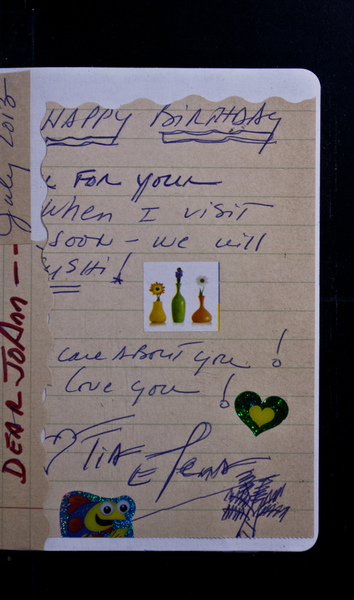 July 2013
DEAR JOANN --
HAPPY BIRTHDAY
FOR YOUR
WHEN I VISIT
SOON - WE WILL
USHI!
CARE ABOUT YOU!
LOVE YOU!
TIA ELENA